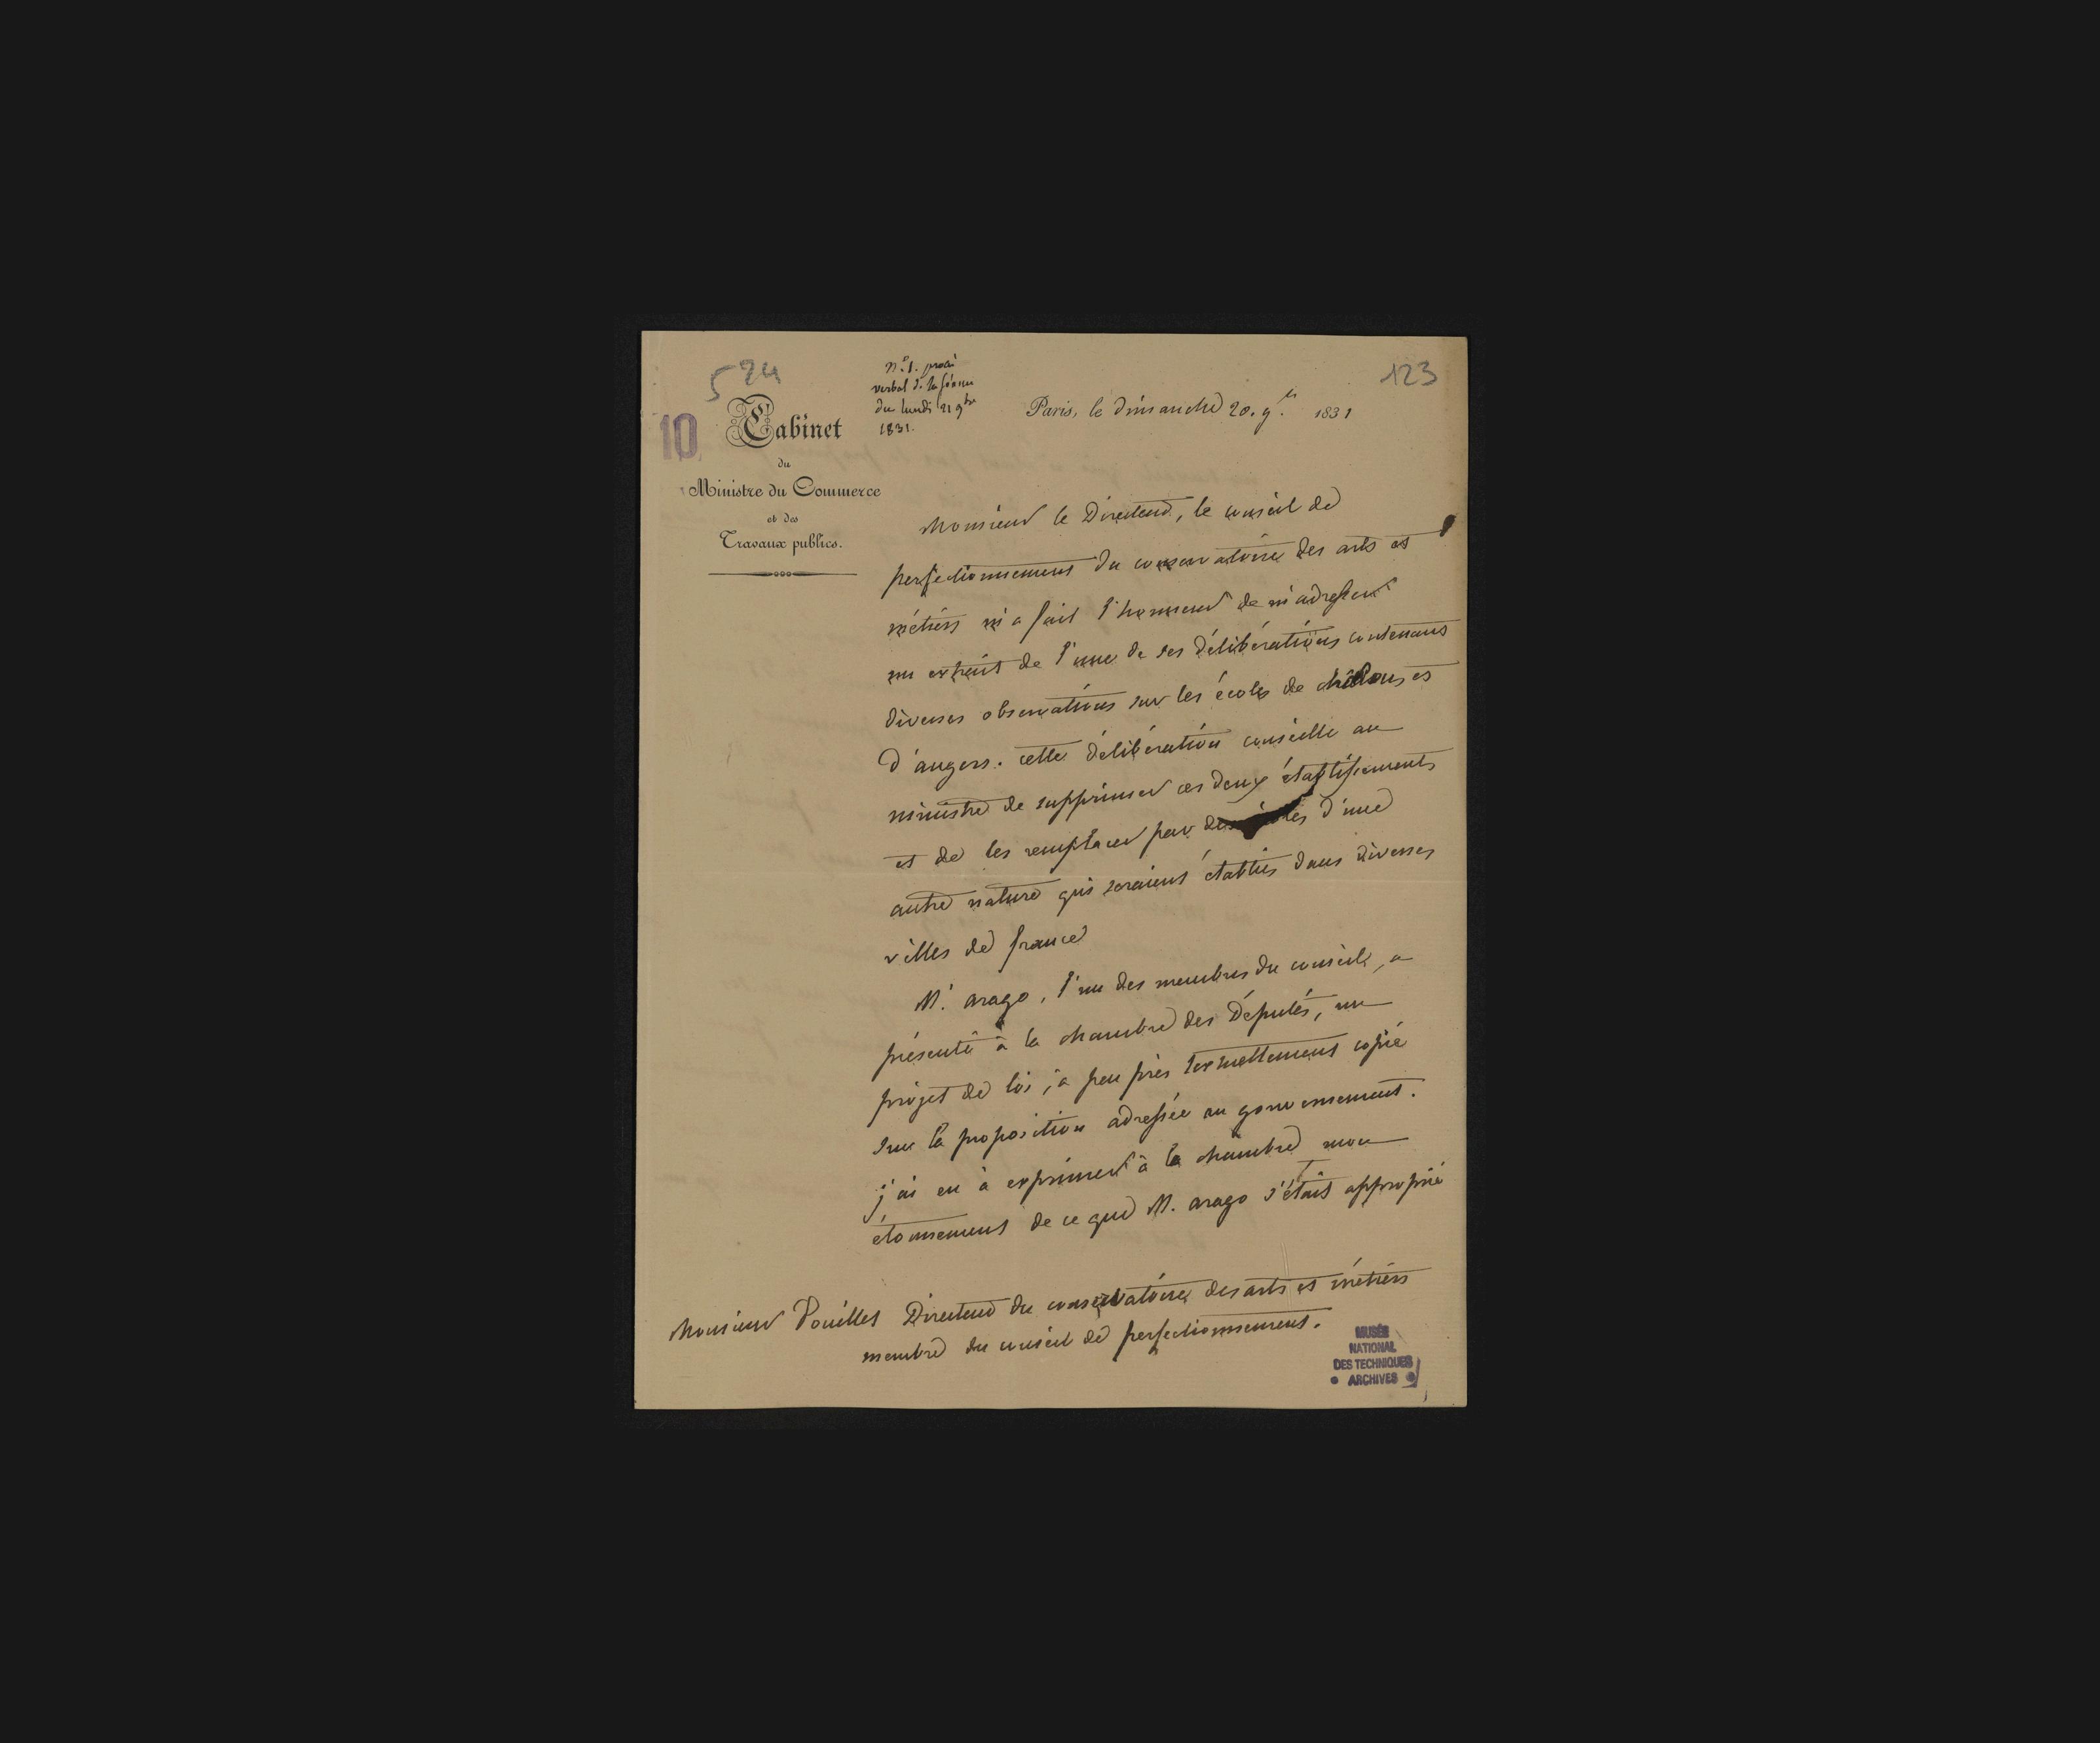 524
n° 1. procès
verbal de la séance
du lundi 21 9bre
1831.
123
10
Cabinet
du
Ministre du Commerce
et des
Travaux publics.
Paris, le dimanche 20. 9.bre 1831
Monsieur le Directeur, le conseil de
perfectionnement du conservatoire des arts et
métiers m'a fait l'honneur de m'adresser
un extrait de l'une de ses délibérations contenant
diverses observations sur les écoles de châlons et
d'angers. cette délibération conseille au
ministre de supprimer ces deux établissements
et de les remplacer par des écoles d'une
autre nature qui seraient établies dans diverses
villes de france
M. arago, l'un des membres du conseil, a
présenté à la chambre des Députés, un
projet de loi, à peu près textuellement copié
sur la proposition adressée au gouvernement.
j'ai eu à exprimer à la chambre mon
étonnement de ce que M. arago s'était approprié
Monsieur Pouillet Directeur du conservatoire des arts et métiers
membre du conseil de perfectionnement.
MUSÉE
NATIONAL
DES TECHNIQUES
ARCHIVES